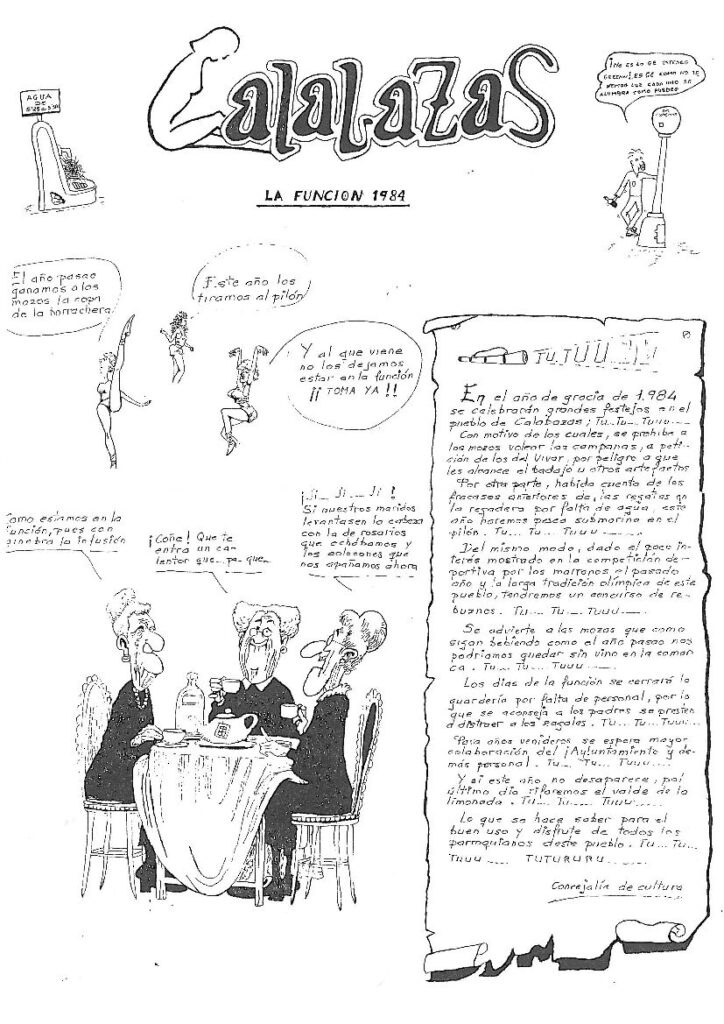 CalaLaZas
AGUA
DE
LA FUNCION 1984
El año pasao
ganamos a los
mozos la copa
de la borrachera
Este año los
tiramos al pilón
Y al que viene
no los dejamos
estar en la función
¡¡ TOMA YA !!
Como estamos en la
función, pues con
ginebra la infusión
¡Coñe! Que te
entra un ca-
lentor que.. pa que..
¡Ji... Ji... Ji!
Si nuestros maridos
levantasen la cabeza
con la de rosarios
que echábamos y
los que
nos apañamos ahora
TU.TUU
En el año de gracia de 1.984
se celebrarán grandes festejos en el
pueblo de Calabazas; Tu... Tu... Tuuu
Con motivo de los cuales, se prohibe a
los mozos volear las campanas, a peti-
ción de los del Vivar, por peligro a que
les alcance el badajo u otros artefactos
Por otra parte, habida cuenta de los
fracasos anteriores de, las regatas en
la regadera por falta de agua, este
año haremos pesca submarina en el
pilón. Tu... Tu... Tuuu
Del mismo modo, dado el poco in-
terés mostrado en la competición de-
portiva por los el pasado
año y la larga tradición olímpica de este
pueblo, tendremos un concurso de re-
buznos. Tu... Tu... Tuuu
Se advierte a las mozas que como
sigan bebiendo como el año pasao nos
podríamos quedar sin vino en la comar
ca. Tu... Tu... Tuuu
Los días de la función se cerrará la
guardería por falta de personal, por lo
que se aconseja a los padres se presten
a distraer a los zagales. Tu... Tu... Tuuu
Para años venideros se espera mayor
colaboración del ¡Ayuntamiento y de-
más personal. Tu... Tu... Tuuu
Y si este año no desaparece, pal
último día rifaremos el valde de la
limonada. Tu... Tu... Tuuu
Lo que se hace saber para el
buen uso y disfrute de todos los
parroquianos deste pueblo. Tu... Tu...
Tuuu TUTURURU
Concejalía de cultura